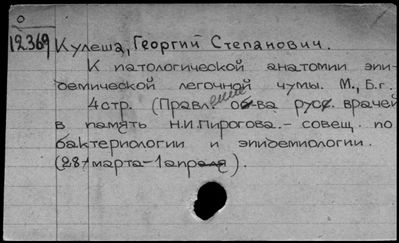 О
12369
Кулеша, Георгий Степанович.
К патологической анатомии эпи-
демической легочной чумы. М., Б.г.
4стр. (Правление о-ва рус. врачей
в память Н.И.Пирогова.- совещ. по
бактериологии и эпидемиологии.
(28/марта-1апреля).